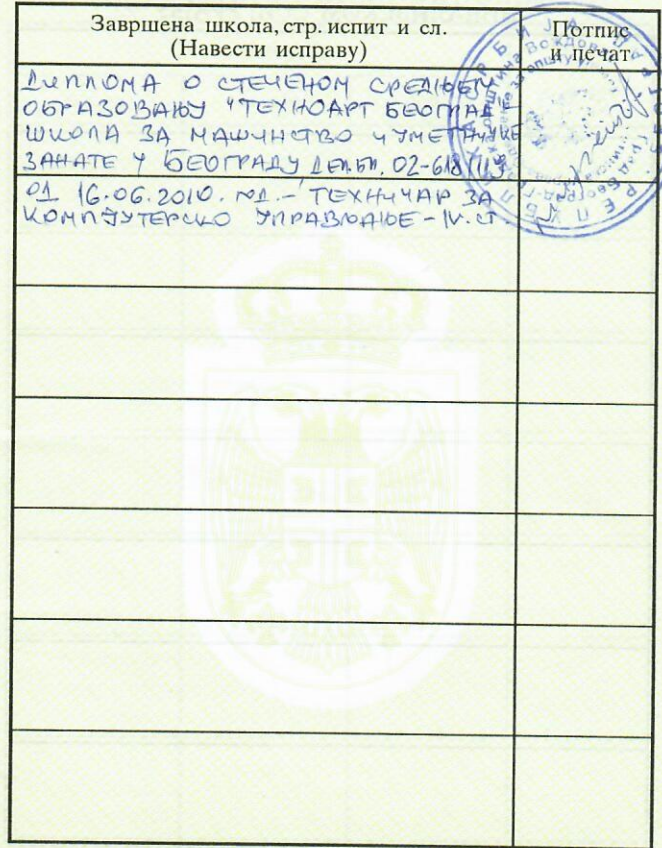 Завршена школа, стр. испит и сл.
(Навести исправу)
Потпис
и печат
ДИПЛОМА О СТЕЧЕНОМ СРЕДЊЕМ
ОБРАЗОВАЊУ "ТЕХНОАРТ БЕОГРАД"
ШКОЛА ЗА МАШИНСТВО И УМЕТНИЧКЕ
ЗАНАТЕ У БЕОГРАДУ ДЕЛ.БР. 02-618/113
ОД 16.06.2010. ГОД. - ТЕХНИЧАР ЗА
КОМПЈУТЕРСКО УПРАВЉАЊЕ - IV. СТ.